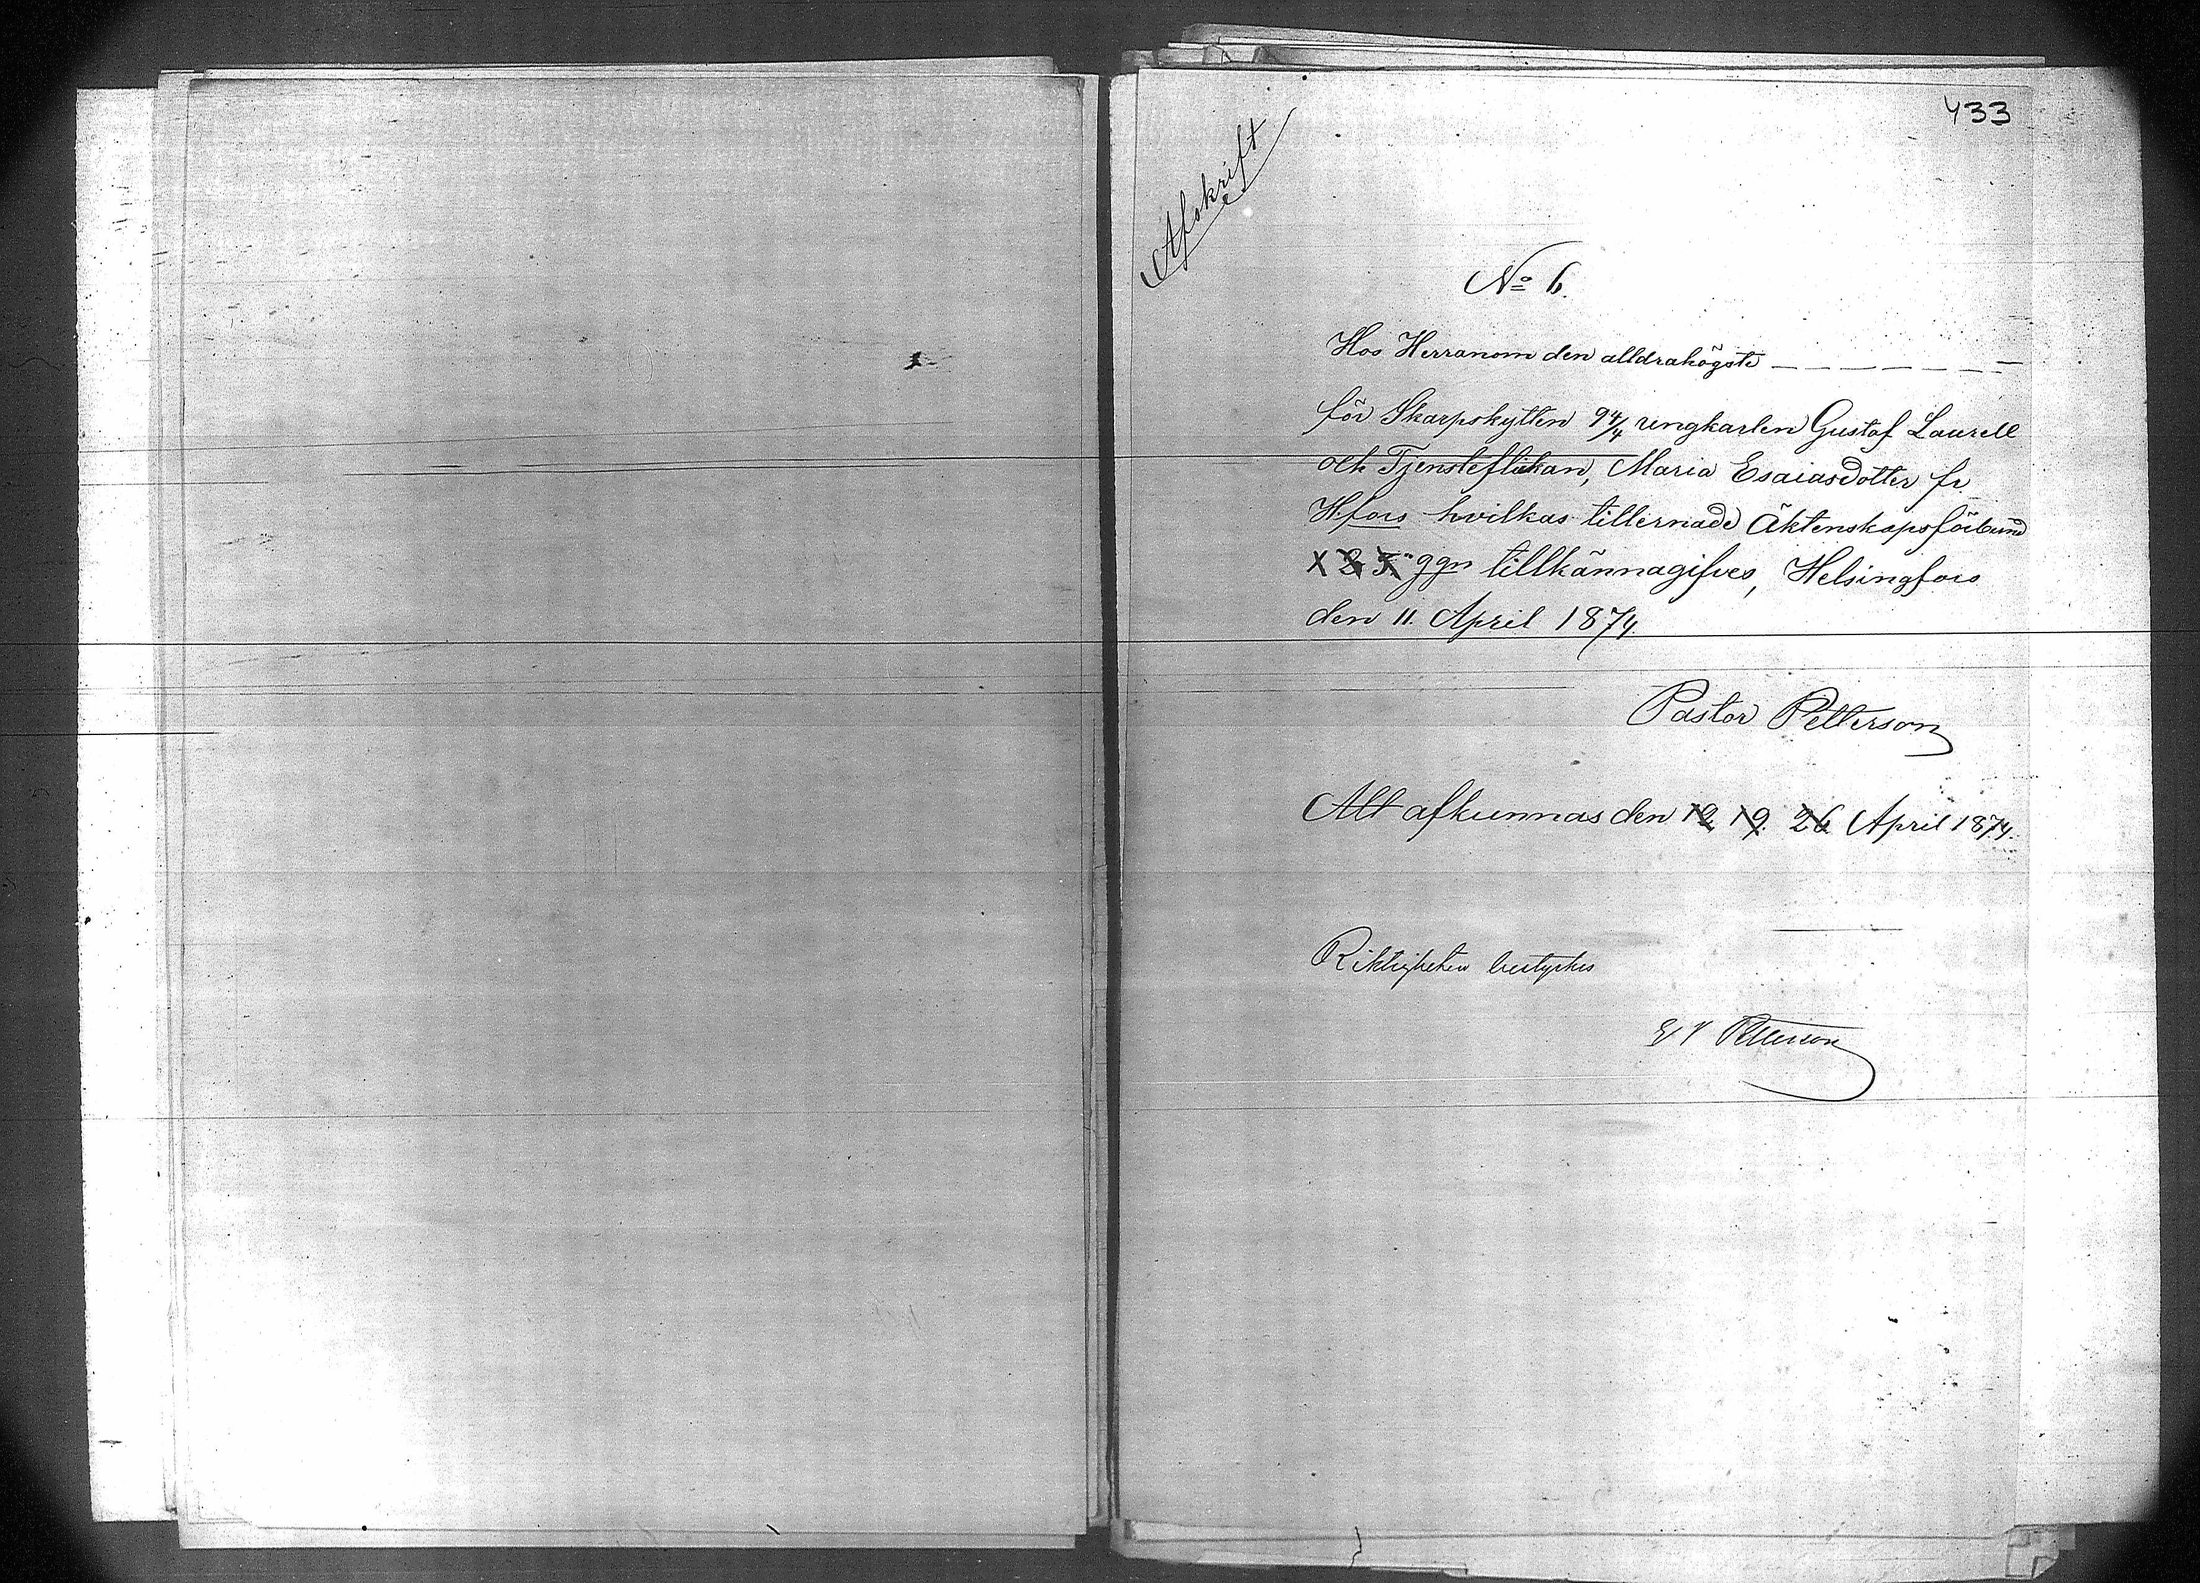 433
Afskrift
No 6.
Hos Herranom den alldrahögste — — — — — —
för Skarpskytten 94/4 ungkarlen Gustaf Laurell
och Tjensteflikan, Maria Esaiasdotter fr.
H.fors hvilkas tillernade Äktenskapsförbund
ggn tillkännagifves, Helsingfors
den 11. April 1874.
Pastor Petterson
Att afkunnas den 12 19. 26 April 1874.
Riktigheten bestyrkes
Petterson